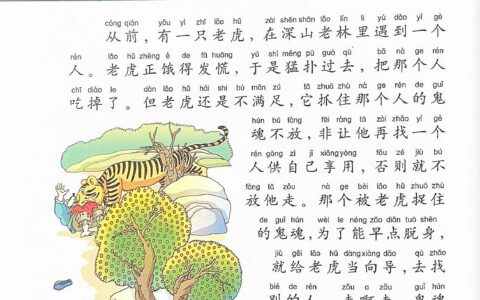 cóng qián yǒu yì zhī lǎo hǔ zài shēn shān lǎo lín lǐ yù dào yí gè
从前，有一只老虎，在深山老林里遇到一个
rén lǎo hǔ zhèng è de fā huāng yú shì měng pū guò qù bǎ nà ge rén
人。老虎正饿得发慌，于是猛扑过去，把那个人
chī diào le dàn lǎo hǔ hái shi bù mǎn zú tā zhuā zhù nà ge rén de guǐ
吃掉了。但老虎还是不满足，它抓住那个人的鬼
hún bú fàng fēi ràng tā zài zhǎo yí gè
魂不放，非让他再找一个
rén gōng zì jǐ xiǎng yòng fǒu zé jiù bú
人供自己享用，否则就不
fàng tā zǒu nà ge bèi lǎo hǔ zhuō zhù
放他走。那个被老虎捉住
de guǐ hún wèi le néng zǎo diǎn tuō shēn
的鬼魂，为了能早点脱身，
jiù gěi lǎo hǔ dāng xiàng dǎo qù zhǎo
就给老虎当向导，去找
bié de rén zǒu a zǒu guǐ hún
别的人。走啊走，鬼魂